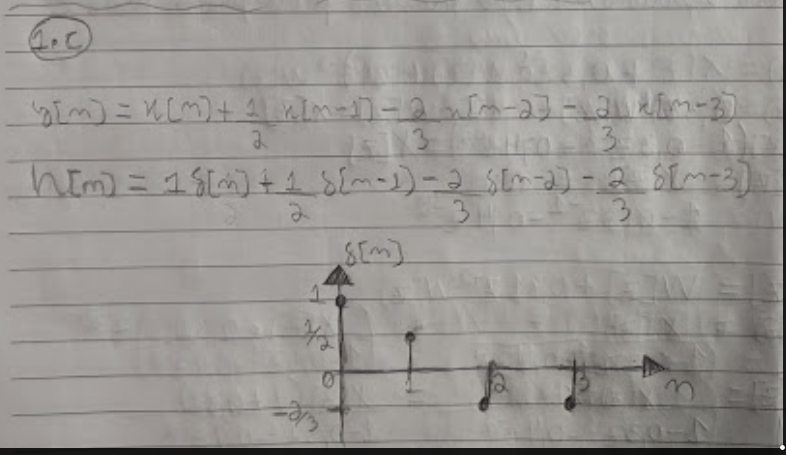 1.c
y[n] = x[n] + 1/2 x[n-1] - 2/3 x[n-2] - 2/3 x[n-3]
h[n] = 1δ[n] + 1/2 δ[n-1] - 2/3 δ[n-2] - 2/3 δ[n-3]
δ[n]
1
1/2
0 1 2 3 n
-2/3